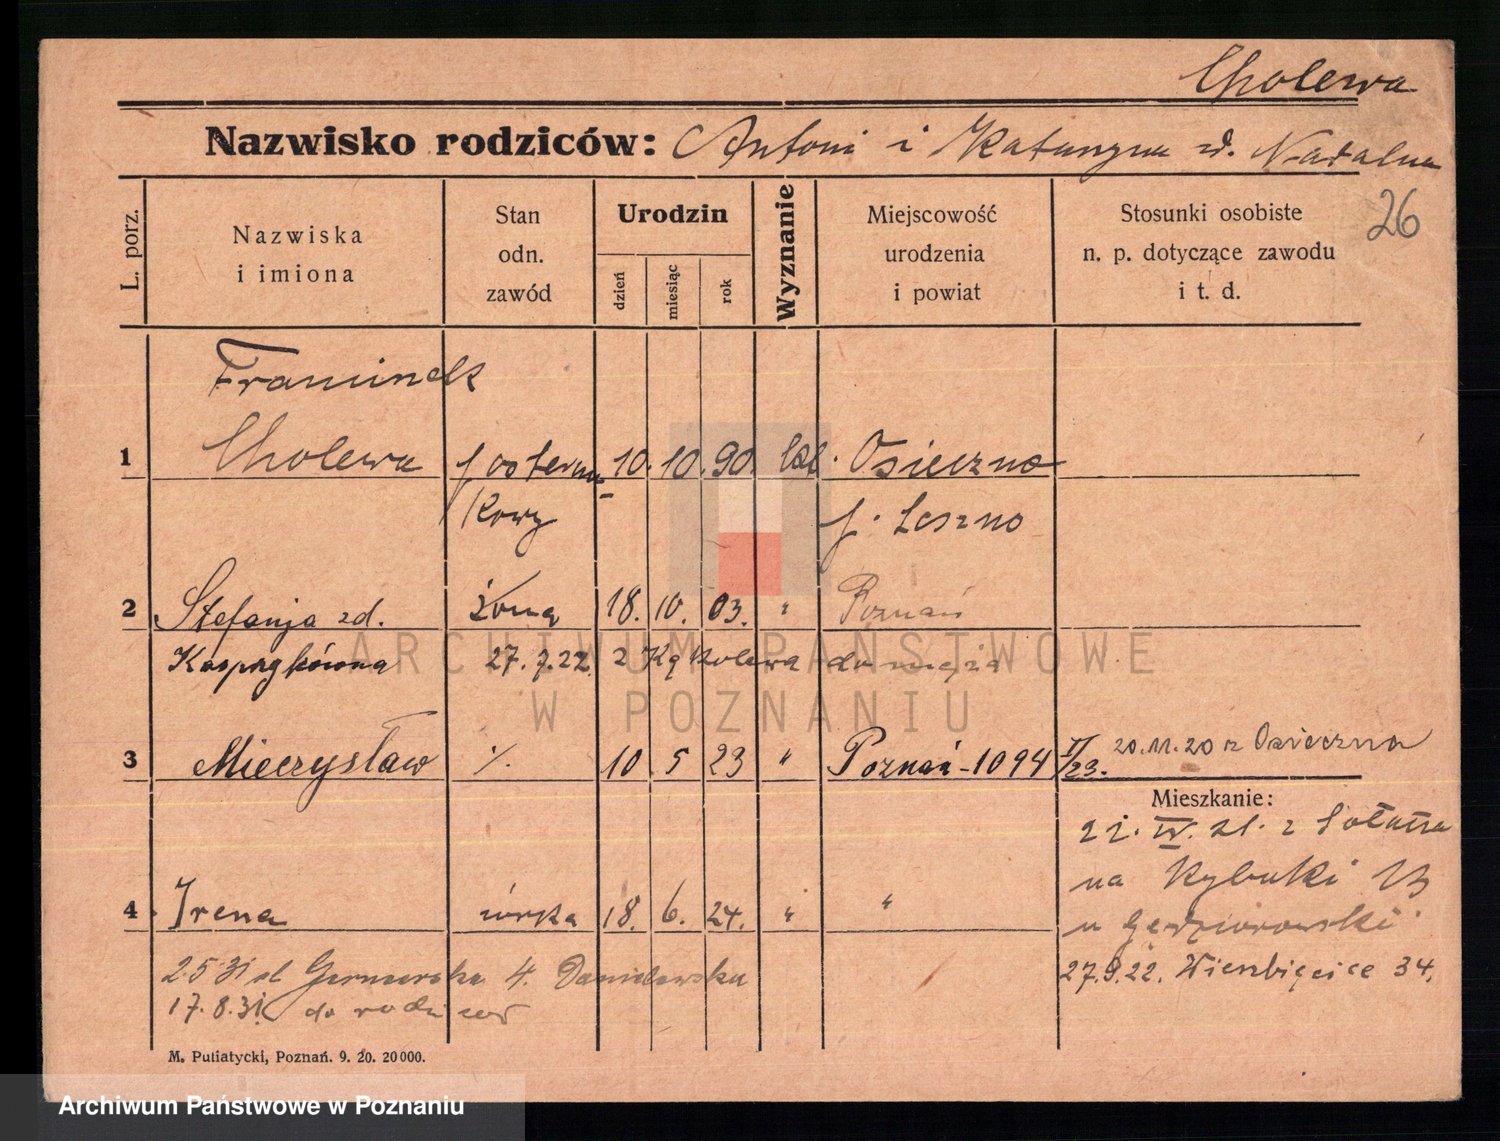 Cholewa
Nazwisko rodziców: Antoni i Katarzyna zd. Nadolna
26
L. porz.
Nazwiska i imiona
Stan odn. zawód
Urodzin
dzień
miesiąc
rok
Wyznanie
Miejscowość urodzenia i powiat
Stosunki osobiste n. p. dotyczące zawodu i t. d.
Franciszek
1 Cholewa posterun- 10. 10. 90. kat. Osieczno
kowy p. Leszno
2 Stefanja zd. żona 18. 10. 03. " Poznań
Kasprzykówna 27.7.22. z Kąkolewa do męża
3 Mieczysław ./. 10 5 23 " Poznań-1094 V/23. 20.11.20 z Osieczna
Mieszkanie:
22. IV. 21. z Sołacza
na Rybaki 13
4 Irena córka 18. 6. 24. " "
u Gedziorowski
27.9.22. Wierzbięcice 34.
2.5.31 4. Danielewska
17.8.31 do rodziców
M. Putiatycki, Poznań. 9. 20. 20000.
ARCHIWUM PAŃSTWOWE
W POZNANIU
Archiwum Państwowe w Poznaniu